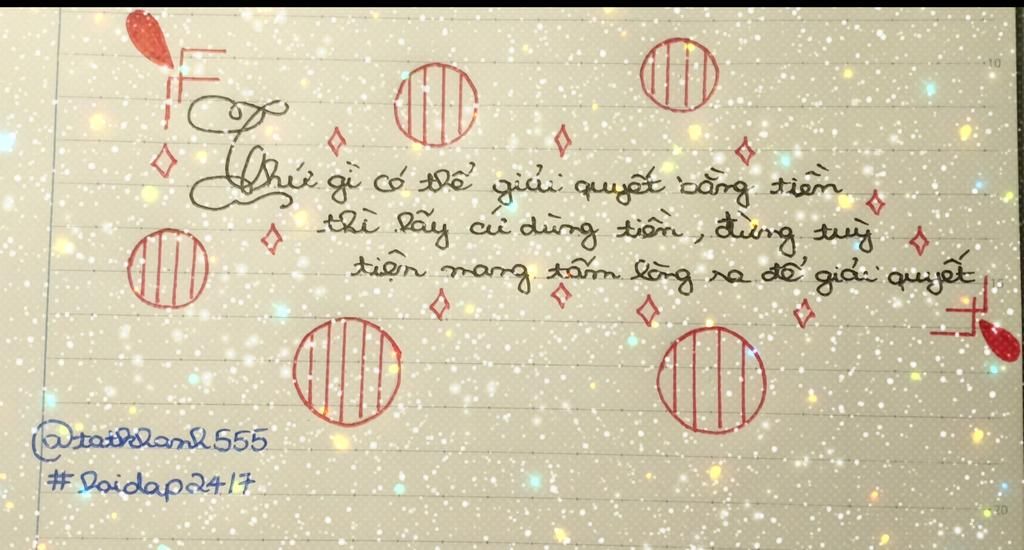 Thứ gì có thể giải quyết bằng tiền
thì hãy cứ dùng tiền, đừng tuỳ
tiện mang tấm lòng ra để giải quyết
@taikhanh555
#hoidap24/7